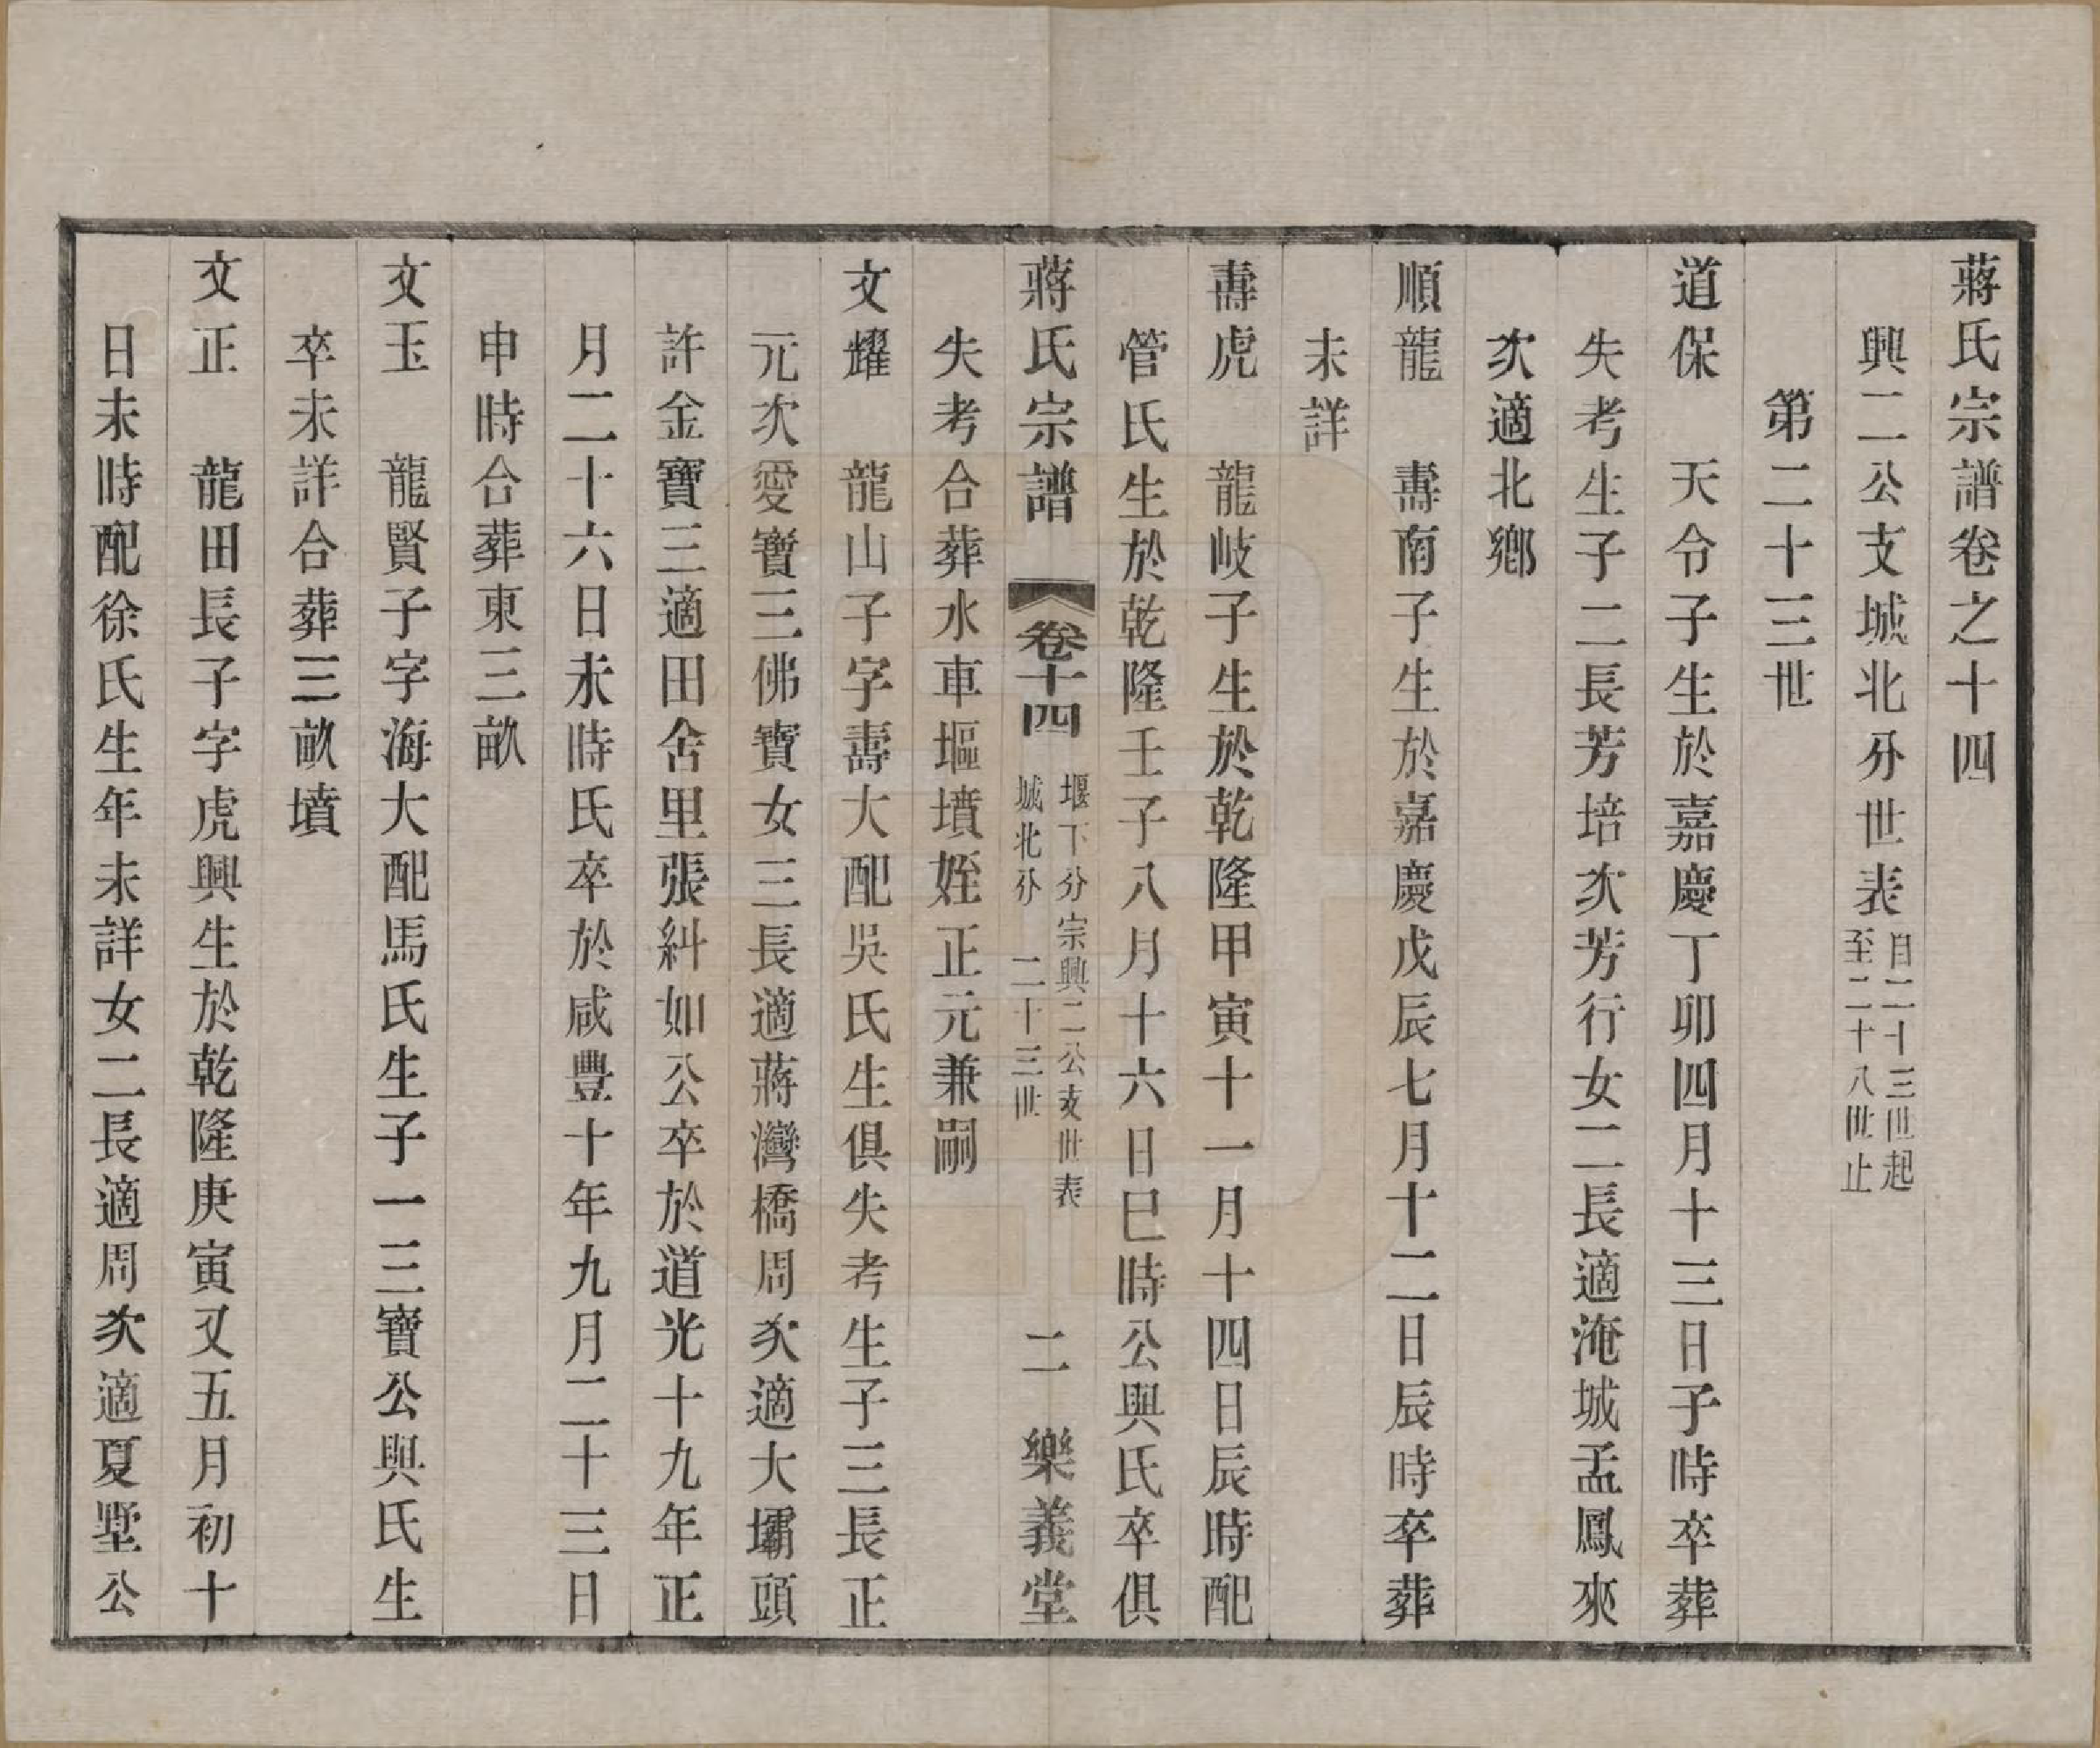 蔣氏宗譜卷之十四
興二公支城北分世表自二十三世起
至二十八世止
第二十三世
道保　天令子生於嘉慶丁卯四月十三日子時卒葬
失考生子二長芳培次芳行女二長適淹城孟鳳來
次適北鄉
順龍　壽南子生於嘉慶戊辰七月十二日辰時卒葬
未詳
壽虎　龍岐子生於乾隆甲寅十一月十四日辰時配
管氏生於乾隆壬子八月十六日巳時公與氏卒俱
蔣氏宗譜　卷十四　堰下分宗興二公支世表
城北分　二十三世　二　樂義堂
失考合葬水車塸墳姪正元兼嗣
文耀　龍山子字壽大配吳氏生俱失考生子三長正
元次愛寶三佛寶女三長適蔣灣橋周次適大壩頭
許金寶三適田舍里張糾如公卒於道光十九年正
月二十六日未時氏卒於咸豐十年九月二十三日
申時合葬東三畝
文玉　龍賢子字海大配馬氏生子一三寶公與氏生
卒未詳合葬三畝墳
文正　龍田長子字虎興生於乾隆庚寅又五月初十
日未時配徐氏生年未詳女二長適周次適夏墅公